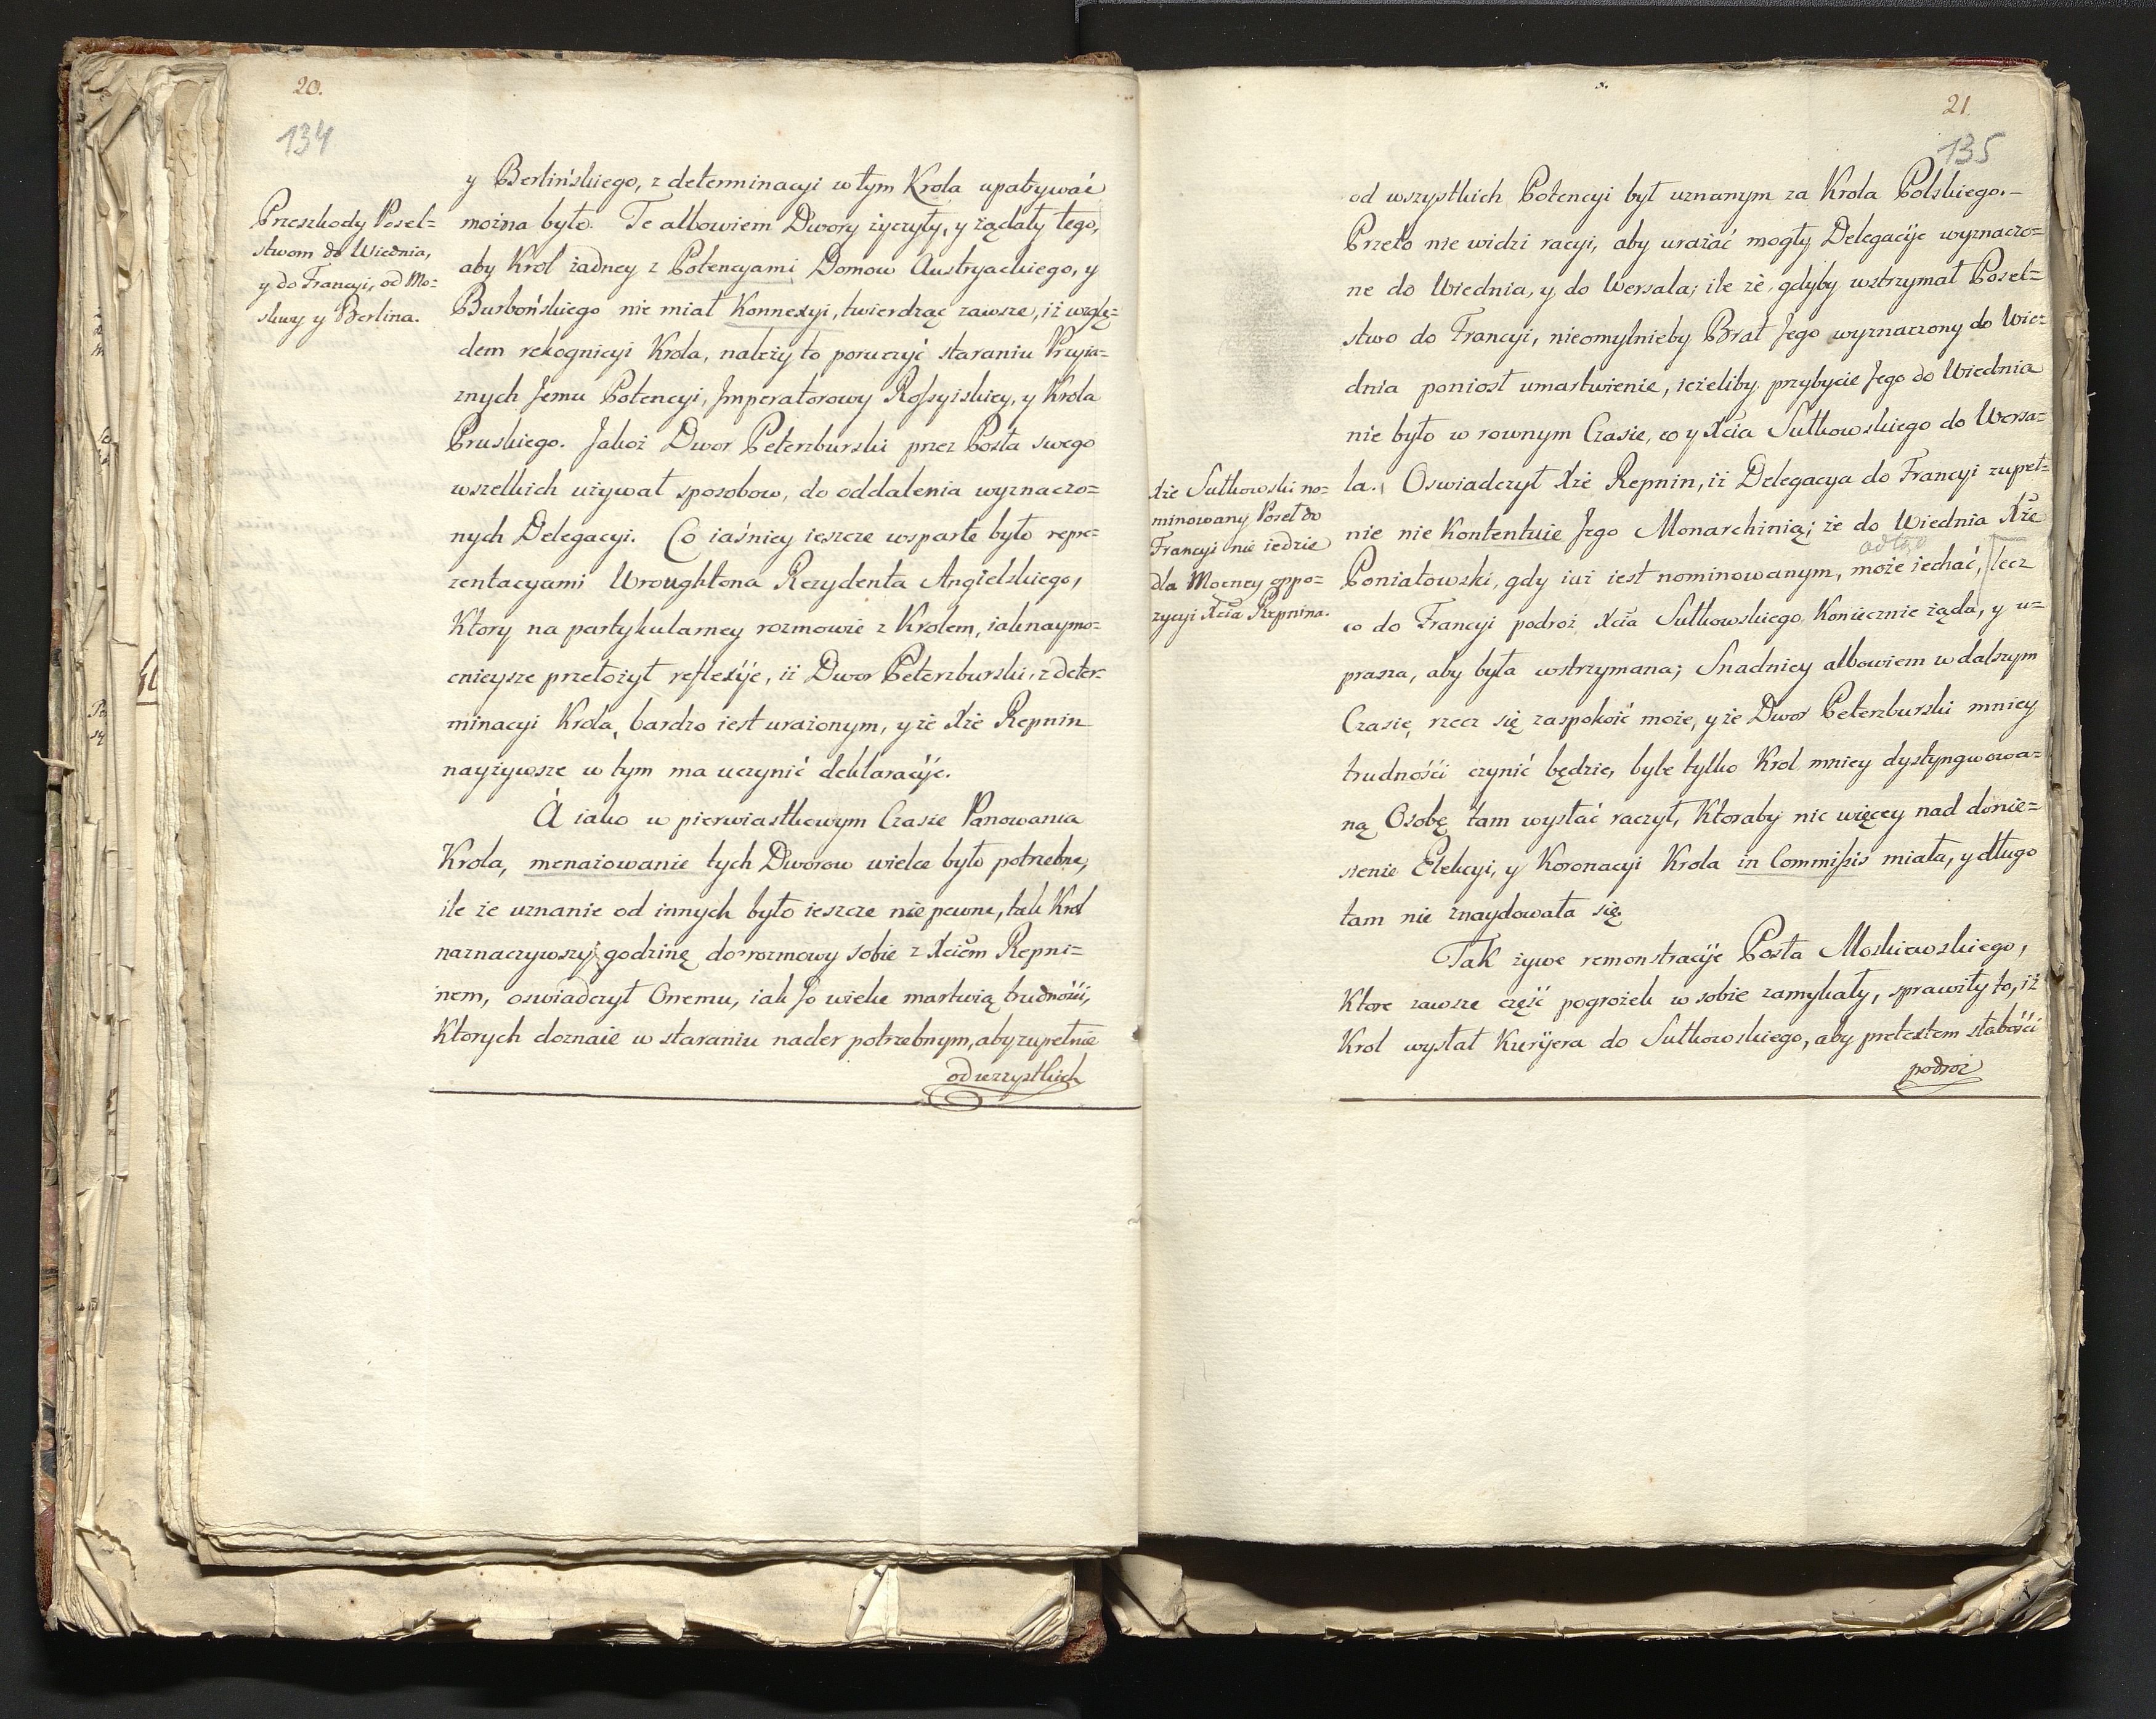 20.
134
Przeszkody Posel=
stwom do Wiednia,
y do Francyi, od Mo=
skwy y Berlina.
y Berlińskiego, z determinacyi w tym Krola upatrywać
można było. Te albowiem Dwory życzyły, y żądały tego,
aby Krol żadney z Potencyami Domow Austryackiego, y
Burbońskiego nie miał Konnexyi, twierdząc zawsze, iż wzglę=
dem rekognicyi Krola, należy to poruczyć staraniu Pryia=
znych Jemu Potencyi, Jmperatorowy Rossyiskiey, y Krola
Pruskiego. Jakoż Dwor Peterzburski przez Posła swego
wszelkich używał sposobow, do oddalenia wyznaczo=
nych Delegacyi. Co iaśniey ieszcze wsparte było repre=
zentacyami Wroughtona Rezydenta Angielskiego,
Ktory na partykularney rozmowie z Krolem, iaknaymo=
cnieysze przełożył reflexÿe, iż Dwor Peterzburski, z deter=
minacyi Krola, bardzo iest urażonym, y że Xże Repnin
nayżywsze w tym ma uczynić deklaracÿe.
A iako w pierwiastkowym Czasie Panowania
Krola, menażowanie tych Dworow wielce było potrzebne,
ile że uznanie od innych było ieszcze nie pewne, tak Krol
naznaczywszy godzinę do rozmowy sobie z Xciem Repni=
nem, oswiadczył Onemu, iak Jo wielce martwią trudności,
Ktorych doznaie w staraniu nader potrzebnym, aby zupełnie
od wszystkich
21.
135
Xże Sułkowski no=
minowany Poseł do
Francyi nie iedzie
dla Mocney oppo=
zycyi Xcia Repnina.
od wszystkich Potencyi był uznanym za Krola Polskiego.-
Przeto nie widzi racyi, aby urażać mogły Delegacÿe wyznaczo=
ne do Wiednia, y do Wersala; ile że, gdyby wstrzymał Posel=
stwo do Francyi, nieomylnieby Brat Jego wyznaczony do Wie=
dnia poniosł umartwienie, ieżeliby przybycie Jego do Wiednia
nie było w rownym Czasie, co y Xcia Sułkowskiego do Wersa=
la. Oswiadczył Xże Repnin, iż Delegacya do Francyi zupeł=
nie nie Kontentuie Jego Monarchinią; że do Wiednia Xże
Poniatowski, gdy iuż iest nominowanym, może iechać, lecz
co do Francyi podroż Xcia Sułkowskiego Koniecznie żąda, y u=
prasza, aby była wstrzymana; Snadniey albowiem w dalszym
Czasie, rzecz się zaspokoić może, y że Dwor Peterzburski mniey
trudności czynić będzie, byle tylko Krol mniey dystyngwowa=
ną Osobę tam wysłać raczył, Ktoraby nic więcey nad donie=
sienie Elekcyi, y Koronacyi Krola in Commissis miała, y długo
tam nie znaydowała się.
Tak żywe remonstracÿe Posła Moskiewskiego,
Ktore zawsze część pogrożek w sobie zamykały, sprawiły to, iż
Krol wysłał Kurÿera do Sułkowskiego, aby pretextem słabości
podroż